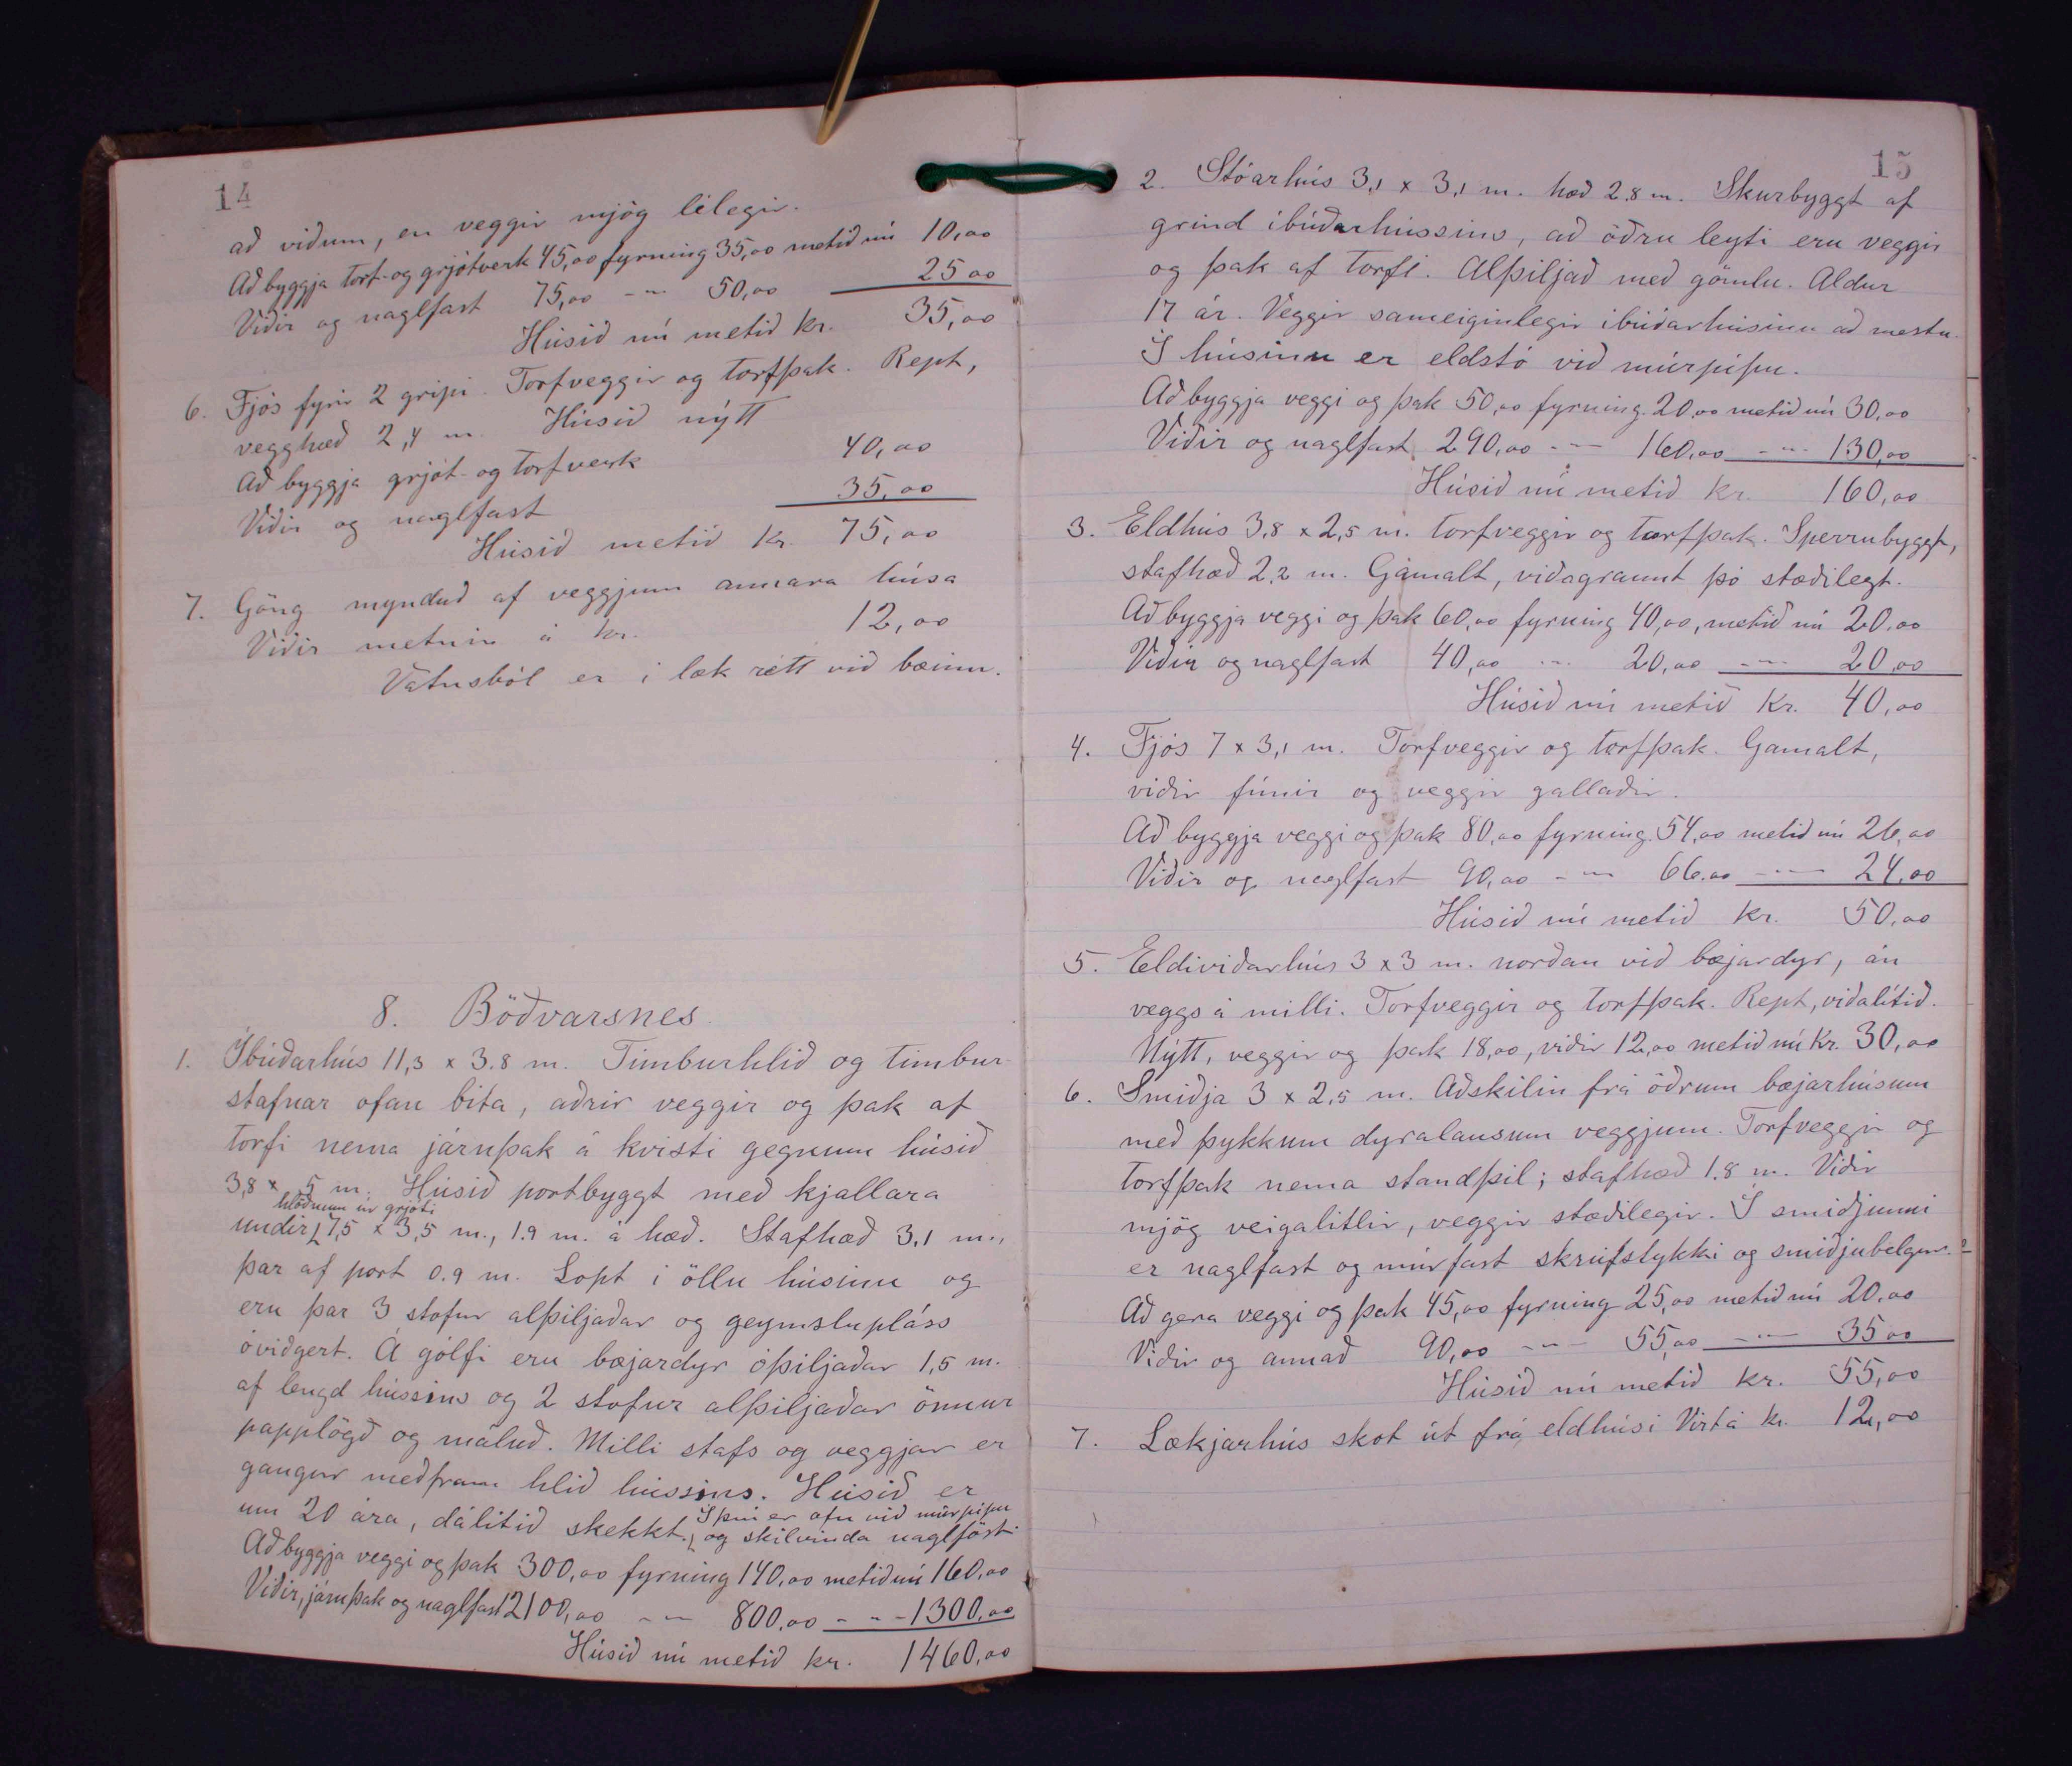 14
að viðum, en veggir mjög lélegir.
Að byggja torf- og grjótverk 45,00 fyrning 35,00 metið nú 10,00
Viðir og naglfast 75,00 -"- 50,00 25 00
Húsið nú metið kr. 35,00
6. Fjós fyrir 2 gripi. Torfveggir og torfþak. Rept,
vegghæð 2,4 m. Húsið nýtt
Að byggja grjót- og torfverk 40,00
Viðir og naglfast 35,00
Húsið metið kr. 75,00
7. Göng mynduð af veggjum annara húsa
Viðir metnir á kr. 12,00
Vatnsból er í læk rétt við bæinn.
8. Böðvarsnes
1. Íbúðarhús 11,3 x 3.8 m. Timburhlið og timbur-
stafnar ofan bita, aðrir veggir og þak af
torfi nema járnþak á kvisti gegnum húsið
3,8 x 5 m. Húsið portbyggt með kjallara
hlöðnum úr grjóti
undir 7,5 x 3,5 m., 1.9 m. á hæð. Stafhæð 3.1 m.,
þar af port 0.9 m. Lopt í öllu húsinu og
eru þar 3 stofur alþiljaðar og geymslupláss
óviðgert. Á gólfi eru bæjardyr óþiljaðar 1,5 m.
af lengd hússins og 2 stofur alþiljaðar önnur
papplögð og máluð. Milli stafs og veggjar er
gangur meðfram hlið hússins. Húsið er
Í því er ofn við múrpípu
um 20 ára, dálítið skekkt. og skilvinda naglföst.
Að byggja veggi og þak 300,00 fyrning 140,00 metið nú 160,00
Viðir, járnþak og naglfast 2100,00 -"- 800,00 -"- 1300,00
Húsið nú metið kr. 1460,00
15
2. Stóarhús 3,1 x 3,1 m. hæð 2.8 m. Skurbyggt af
grind íbúðarhússins, að öðru leyti eru veggir
og þak af torfi. Alþiljað með gömlu. Aldur
17 ár. Veggir sameiginlegir íbúðarhúsinu að mestu.
Í húsinu er eldstó við múrpípu.
Að byggja veggi og þak 50,00 fyrning 20,00 metið nú 30,00
Viðir og naglfast 290,00 -"- 160,00 -"- 130,00
Húsið nú metið kr. 160,00
3. Eldhús 3,8 x 2,5 m. torfveggir og torfþak. Sperrubyggt,
stafhæð 2,2 m. Gamalt, viðagrannt þó stæðilegt.
Að byggja veggi og þak 60,00 fyrning 40,00, metið nú 20,00
Viðir og naglfast 40,00 -"- 20,00 -"- 20,00
Húsið nú metið Kr. 40,00
4. Fjós 7 x 3,1 m. Torfveggir og torfþak. Gamalt,
viðir fúnir og veggir gallaðir.
Að byggja veggi og þak 80,00 fyrning 54,00 metið nú 26,00
Viðir og naglfast 90,00 -"- 66.00 -"- 24,00
Húsið nú metið kr. 50,00
5. Eldiviðarhús 3 x 3 m. norðan við bæjardyr, án
veggs á milli. Torfveggir og torfþak. Rept, viðalítið.
Nýtt, veggir og þak 18,00, viðir 12,00 metið nú Kr. 30,00
6. Smiðja 3 x 2,5 m. Aðskilin frá öðrum bæjarhúsum
með þykkum dyralausum veggjum. Torfveggir og
torfþak nema standþil; stafhæð 1.8 m. Viðir
mjög veigalitlir, veggir stæðilegir. Í smiðjunni
er naglfast og múrfast skrúfstykki og smiðjubelgur.
Að gera veggi og þak 45,00 fyrning 25,00 metið nú 20,00
Viðir og annað 90,00 -"- 55,00 -"- 35 00
Húsið nú metið kr. 55,00
7. Lækjarhús skot út frá eldhúsi Virt á kr. 12,00